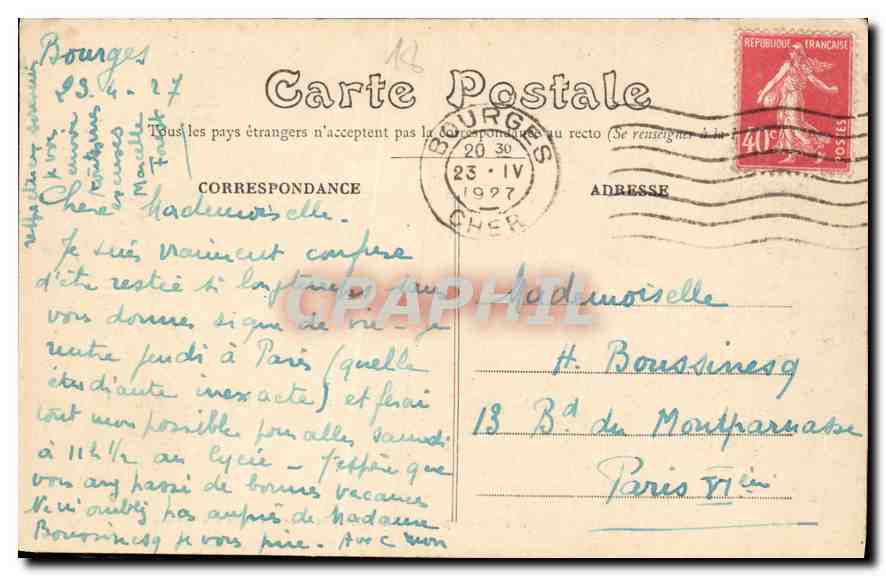 Bourges
23.4.27
18
Carte Postale
Tous les pays étrangers n'acceptent pas la correspondance au recto (Se renseigner à la
RÉPUBLIQUE FRANÇAISE
40c
POSTES
BOURGES
20 30
23 · IV
1927
CHER
CORRESPONDANCE
ADRESSE
Chère Mademoiselle.
Je suis vraiment confuse
d'être restée si longtemps sans
vous donner signe de vie - Je
rentre jeudi à Paris (quelle
étudiante inexacte) et ferai
tout mon possible pour aller samedi
à 11h 1/2 au lycée - J'espère que
vous avez passé de bonnes vacances
Ne m'oubliez pas auprès de Madame
Boussinesq je vous prie - Avec mon
respectueux souvenir
je vous
envoie
toutes mes
excuses
Marcelle
Mademoiselle
H. Boussinesq
13 Bd du Montparnasse
Paris VIème
CPAPHIL